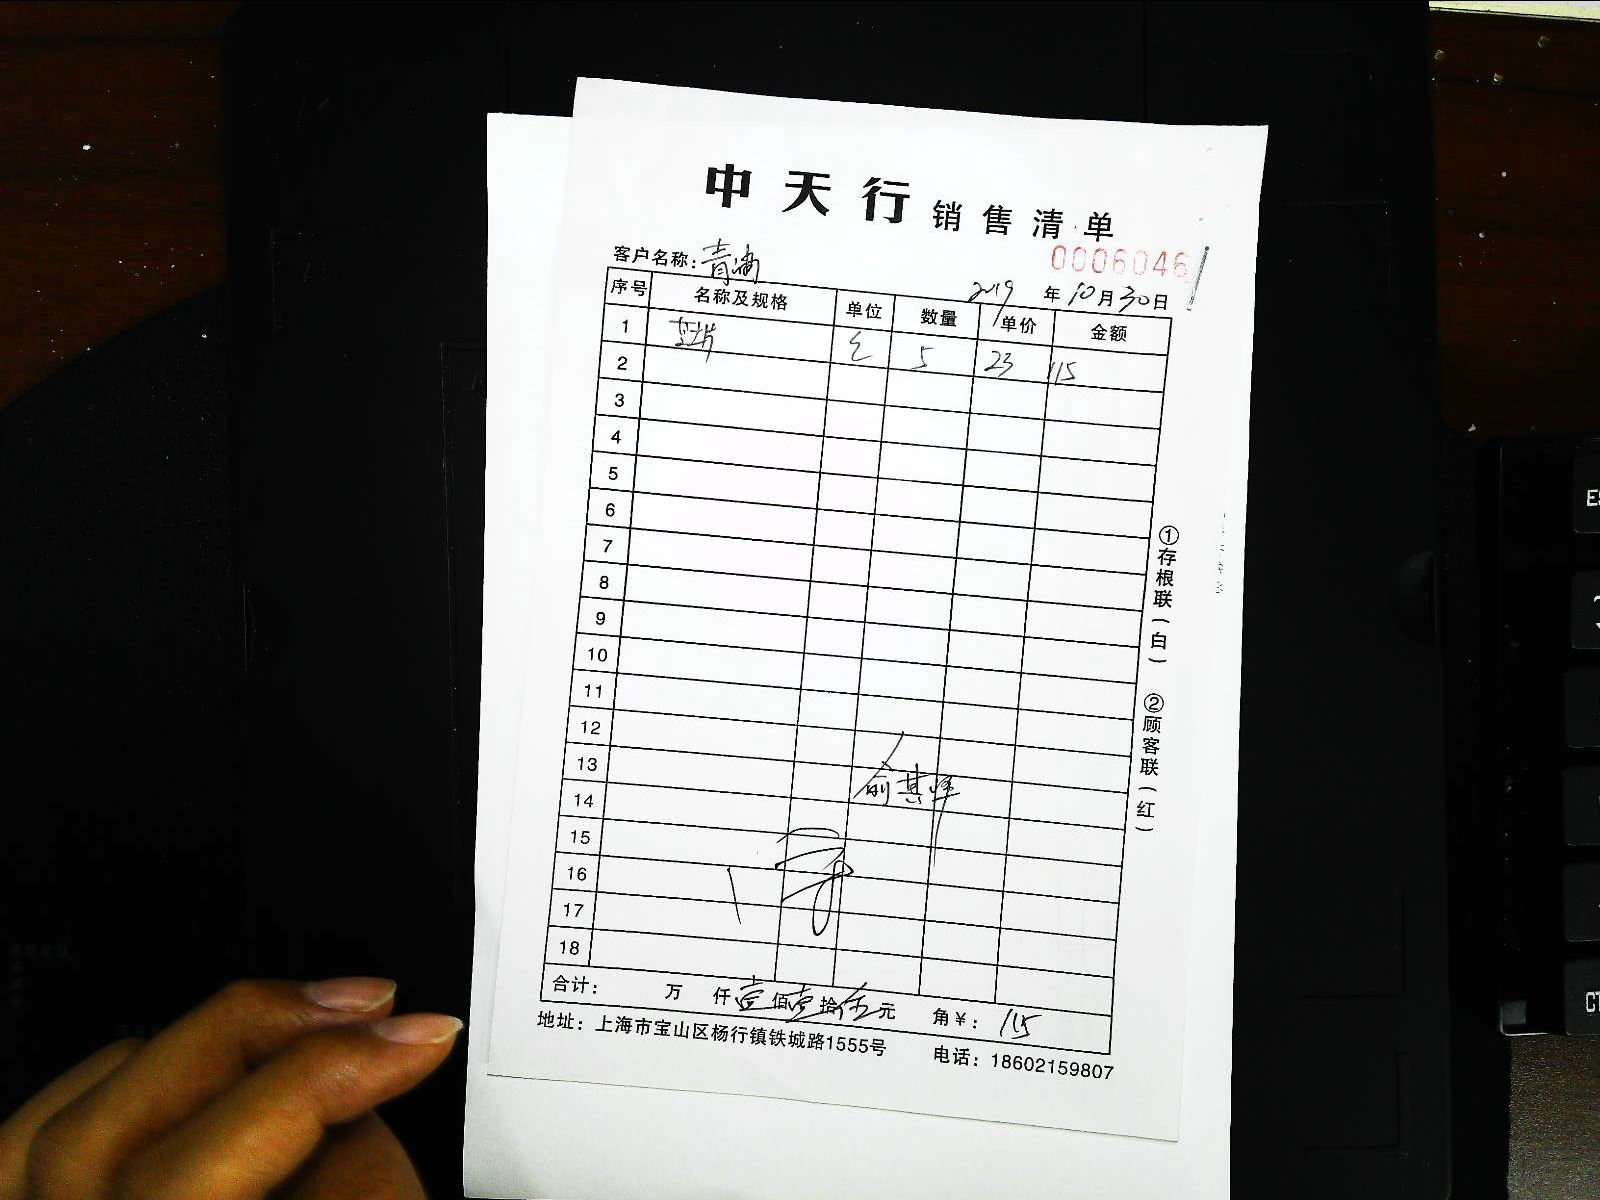 中天行 销售清单
0006046
客户名称：青浦
2019年10月30日
序号 名称及规格 单位 数量 单价 金额
1 5 23 115
2
3
4
5
6
7
8
9
10
11
12
13
14
俞其峰
15
16
17
18
合计： 万 仟壹佰壹拾伍元 角¥：115
地址：上海市宝山区杨行镇铁城路1555号 电话：18602159807
①存根联（白） ②顾客联（红）